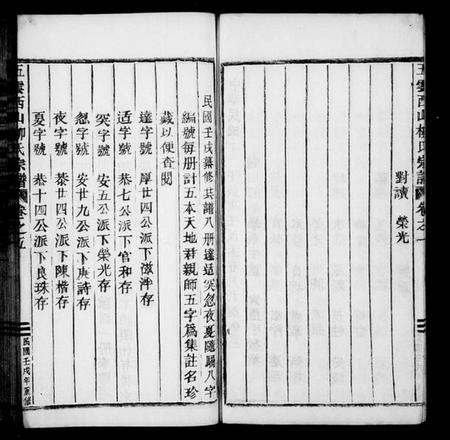 五雲西山柳氏宗譜 卷之一
對讀 榮光
民國壬戌纂修其譜八册達适突忽夜夏隨騧八字
編號每册計五本天地君親師五字爲集註名珍
藏以便查閱
達字號 厚廿四公派下滋洋存
适字號 恭七公派下官和存
突字號 安五公派下榮光存
忽字號 安廿九公派下庚詩存
夜字號 恭廿四公派下陳楷存
夏字號 恭十四公派下良珠存
五雲西山柳氏宗譜 卷之五
民國壬戌年重修